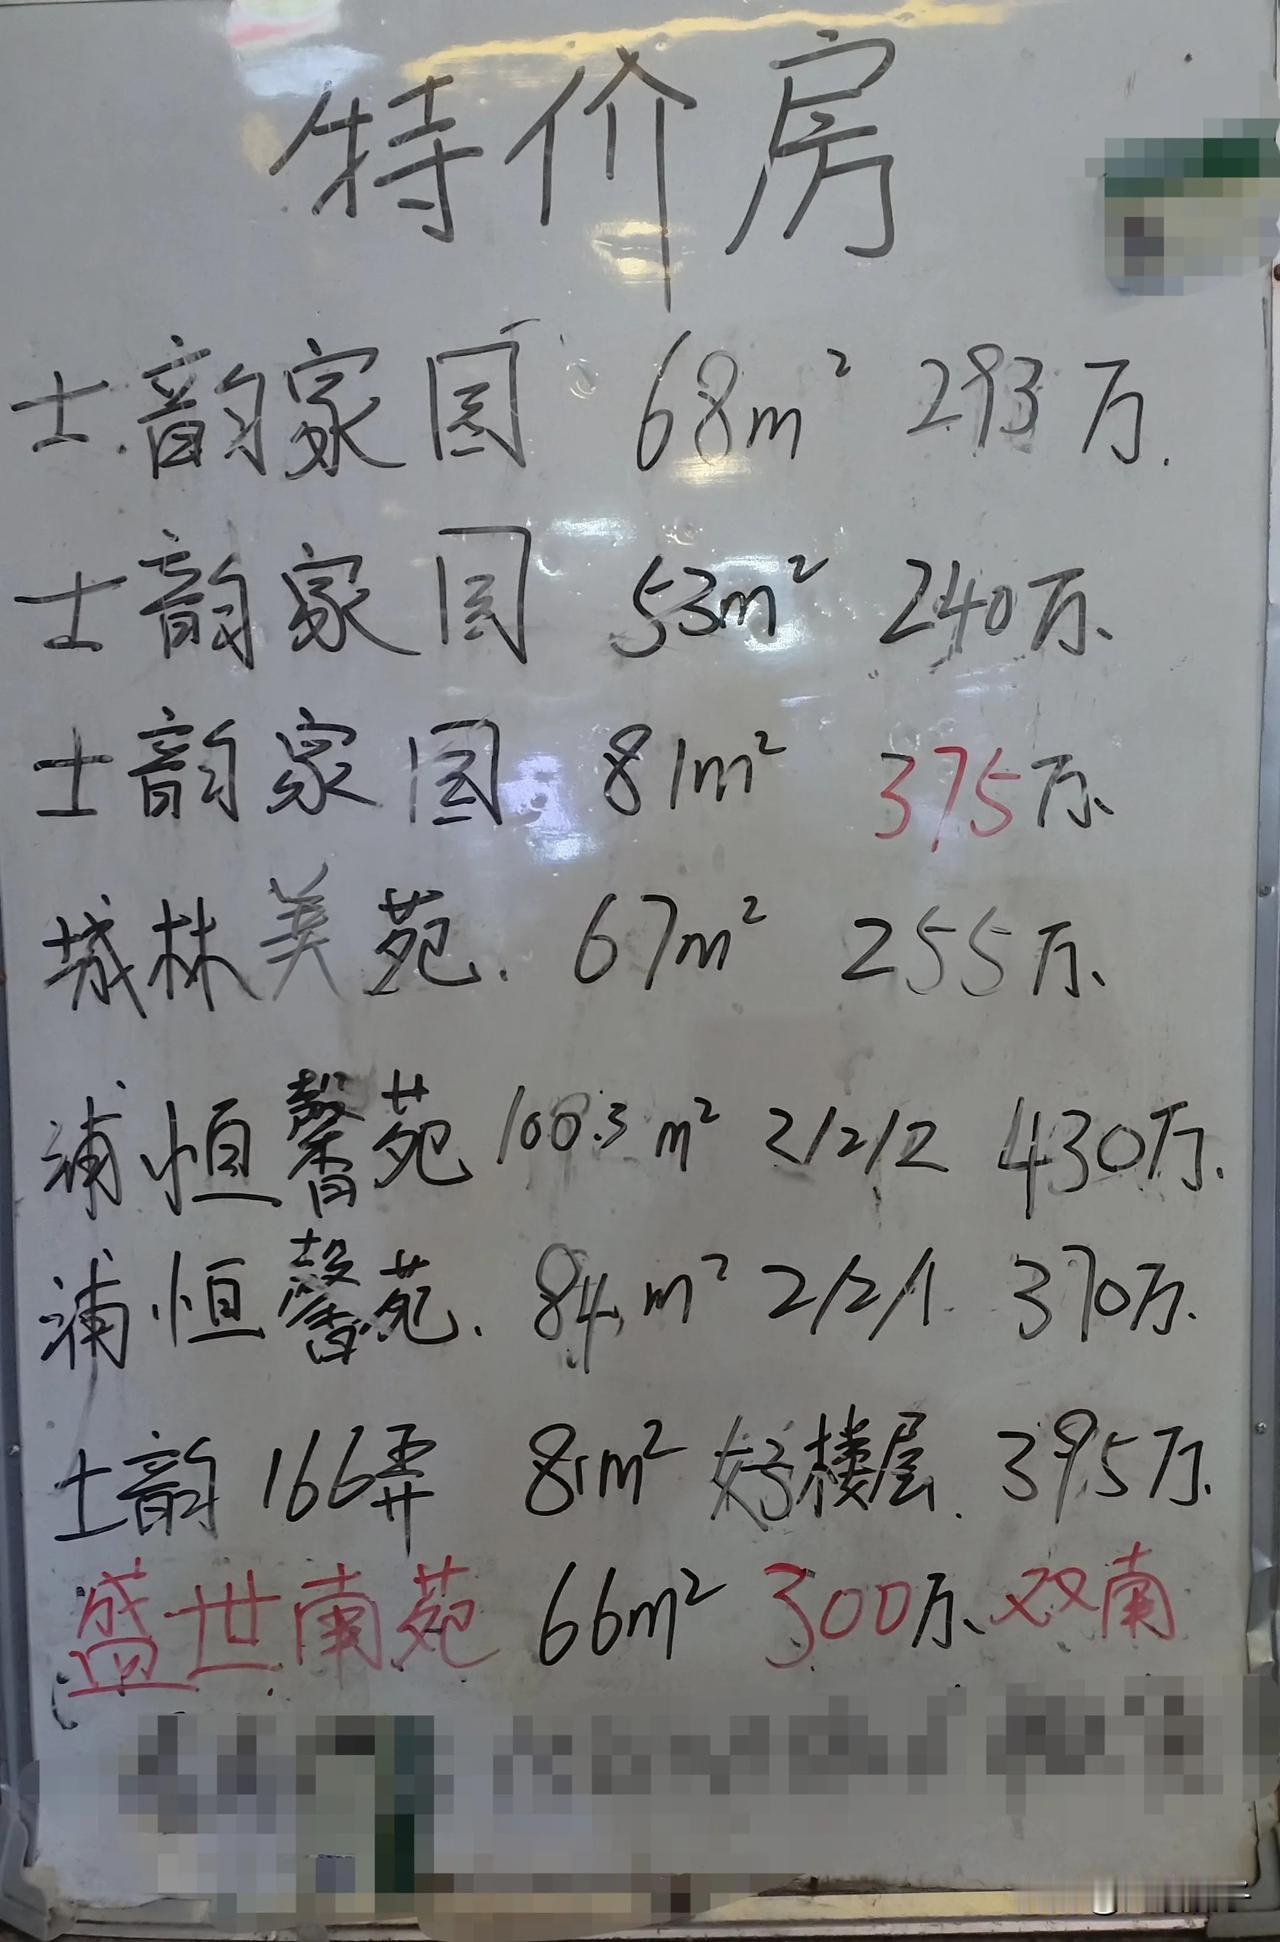 特价房
士韵家园 68m² 293万.
士韵家园 53m² 240万、
士韵家园 81m² 375万、
城林美苑. 67m² 255万、
浦恒馨苑 100.3m² 2/2/2 430万.
浦恒馨苑. 84m² 2/2/1. 370万.
士韵166弄 81m² 好楼层. 395万.
盛世南苑 66m² 300万、双南